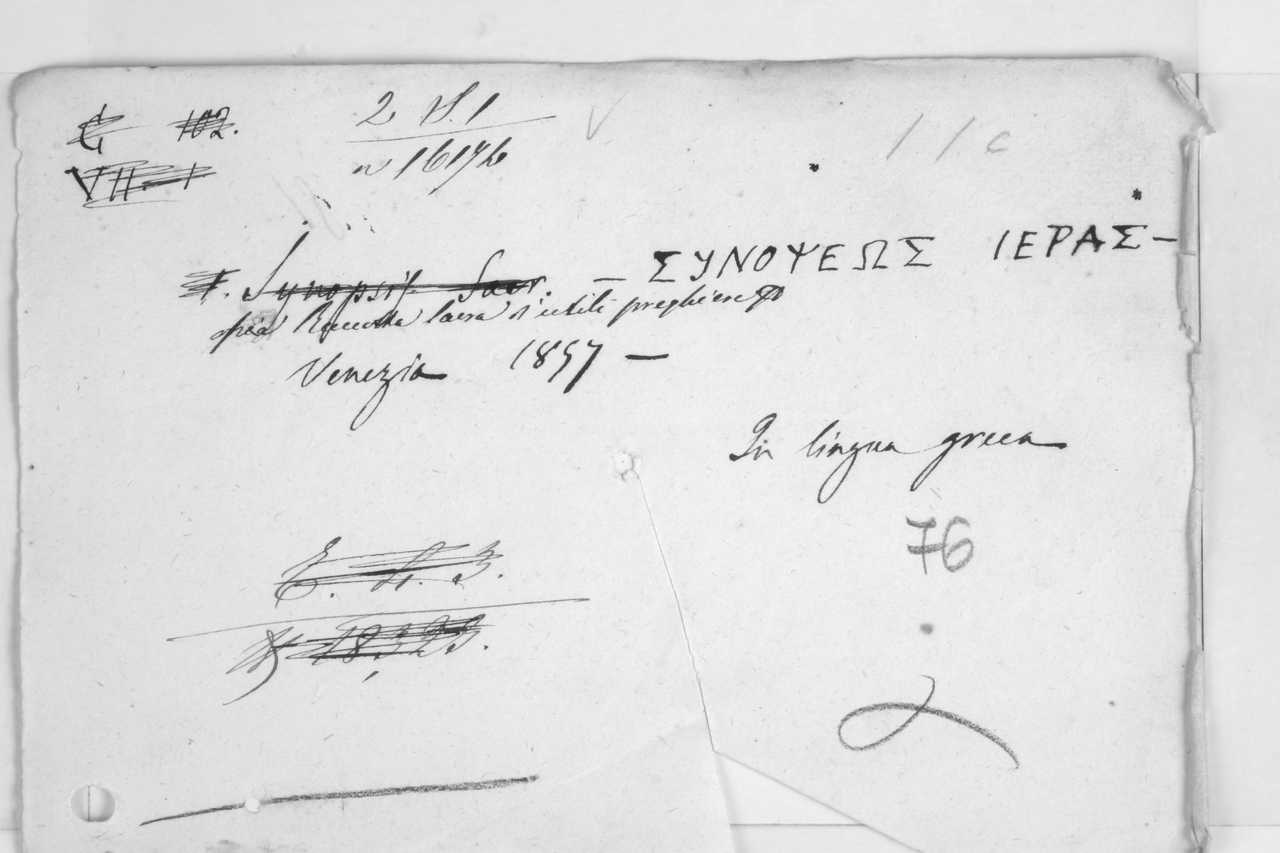 102.
2 H. 1
VII - 1
n 16176
Synopsis Sacr. — ΣΥΝΟΨΕΩΣ ΙΕΡΑΣ —
Raccolta sacra d'utili preghiere
Venezia 1857 —
In lingua greca
76
E. H. 3.
18,323.